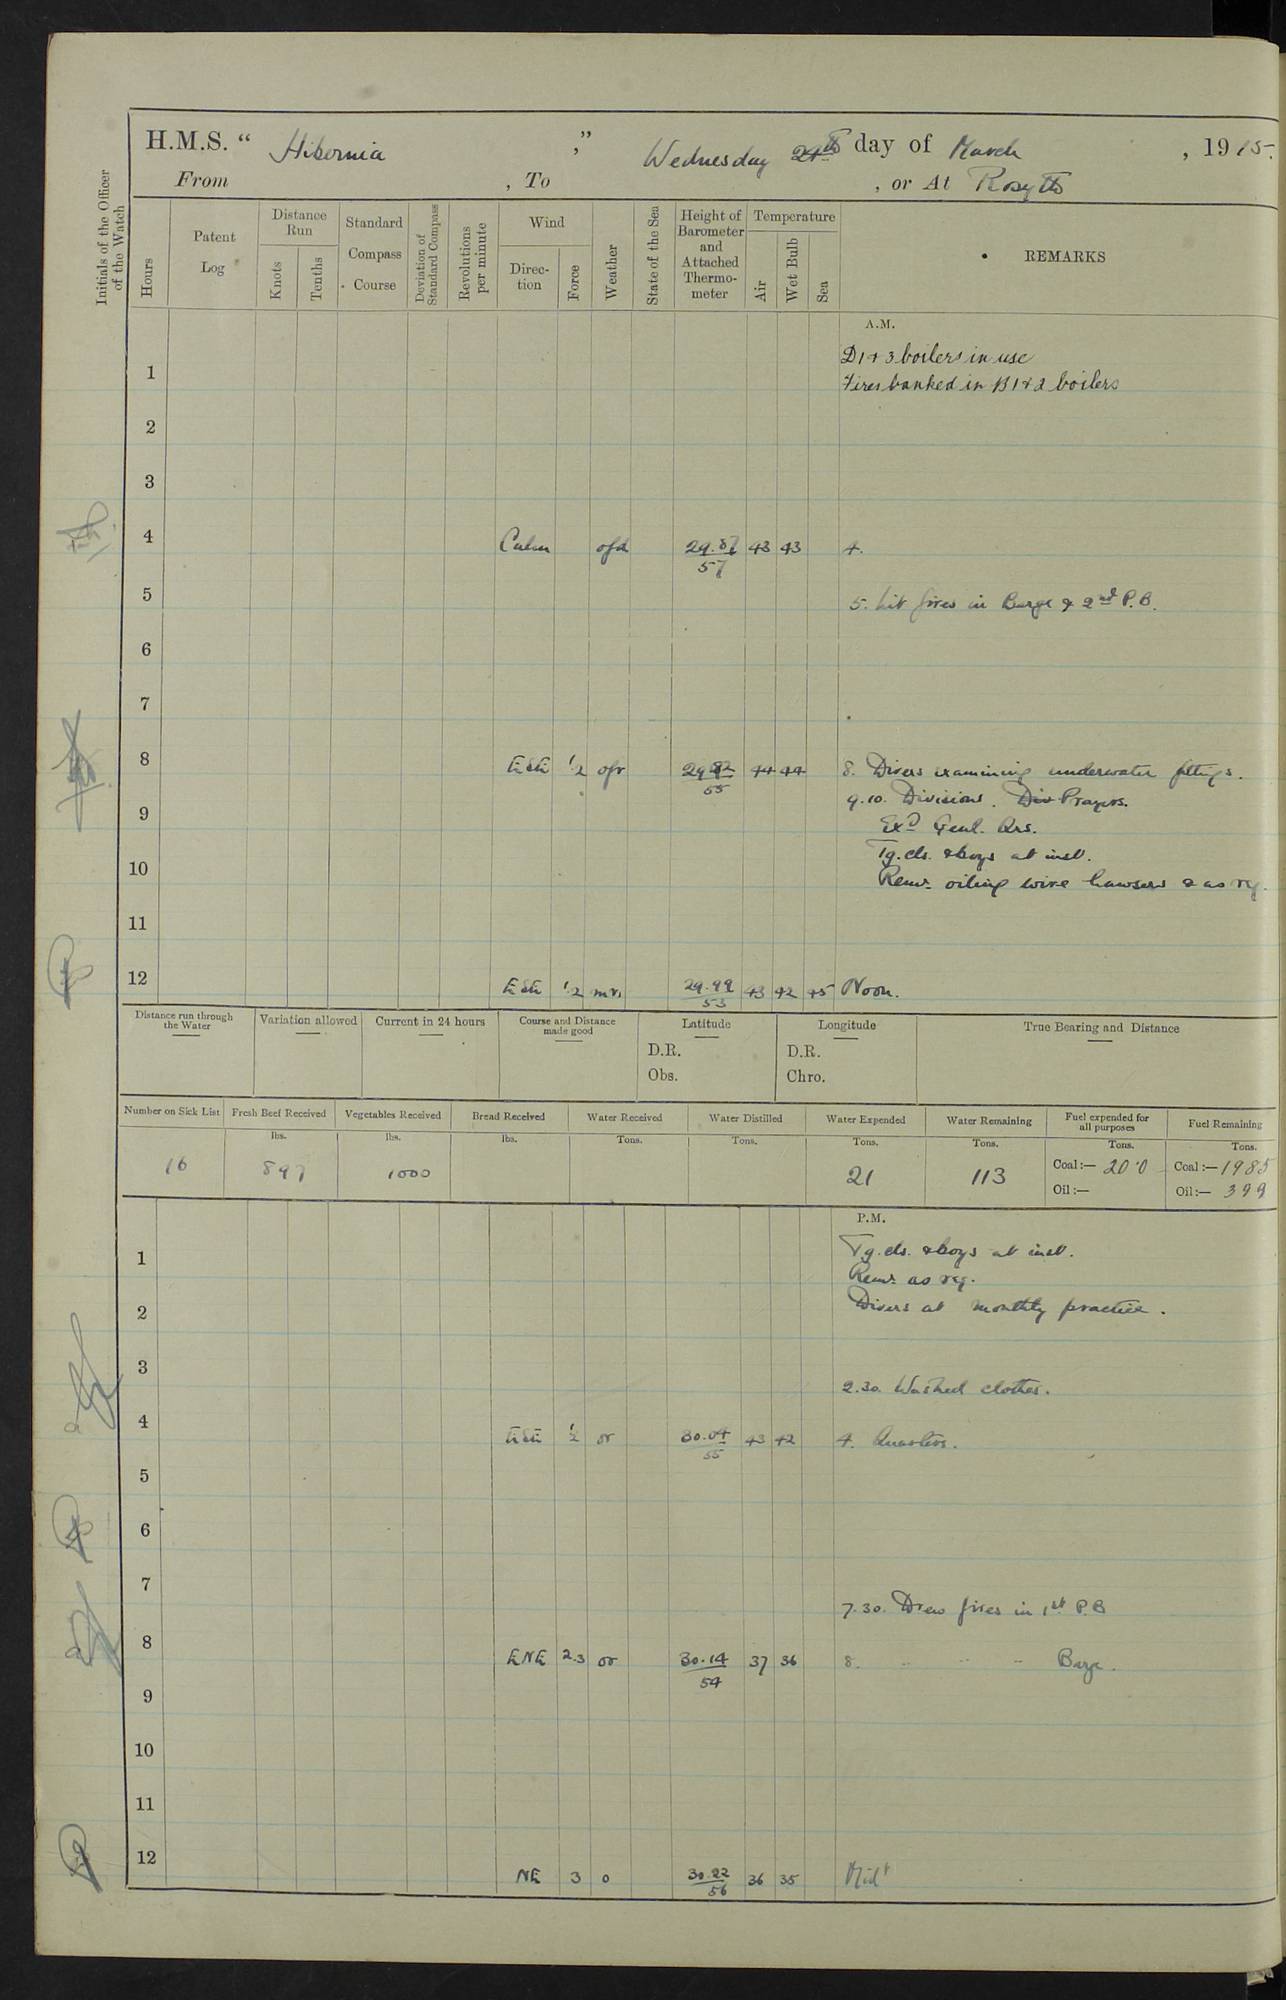 H.M.S. “ Hibernia ”, Wednesday 24th day of March, 1915.
From , To , or At Rosyth
Initials of the Officer of the Watch
Hours
Patent Log
Distance Run
Knots
Tenths
Standard Compass Course
Deviation of Standard Compass
Revolutions per minute
Wind
Direction
Force
Weather
State of the Sea
Height of Barometer and Attached Thermometer
Temperature
Air
Wet Bulb
Sea
REMARKS
A.M.
D 1 & 3 boilers in use
1
Fires banked in B 1 & 2 boilers
2
3
4 Calm ofd 29.87 43 43 4.
57
5 5. Lit fires in Barge & 2nd P.B.
6
7
8 ESE 1/2 ofr 29.92 44 44 8. Divers examining underwater fittings.
55
9.10. Divisions. Div Prayers.
9
Exd Genl. Qrs.
Tg. cls. & boys at inst.
10
Remr. oiling wire hawsers & as req.
11
12 ESE 1/2 mr. 29.99 43 42 45 Noon.
53
Distance run through the Water
Variation allowed
Current in 24 hours
Course and Distance made good
Latitude
D.R.
Obs.
Longitude
D.R.
Chro.
True Bearing and Distance
Number on Sick List Fresh Beef Received Vegetables Received Bread Received Water Received Water Distilled Water Expended Water Remaining Fuel expended for all purposes Fuel Remaining
lbs. lbs. lbs. Tons. Tons. Tons. Tons. Tons. Tons.
16 897 1000 21 113 Coal:— 20.0 Coal:— 1985
Oil:— Oil:— 399
P.M.
Tg. cls. & boys at inst.
1
Remr. as req.
2 Divers at monthly practice.
3
2.30. Washed clothes.
4 ESE 1/2 or 30.04 43 42 4. Quarters.
55
5
6
7
7.30. Drew fires in 1st P.B
8 ENE 2.3 or 30.14 37 36 8. " " " Barge.
54
9
10
11
12 NE 3 o 30.22 36 35 Midt
56